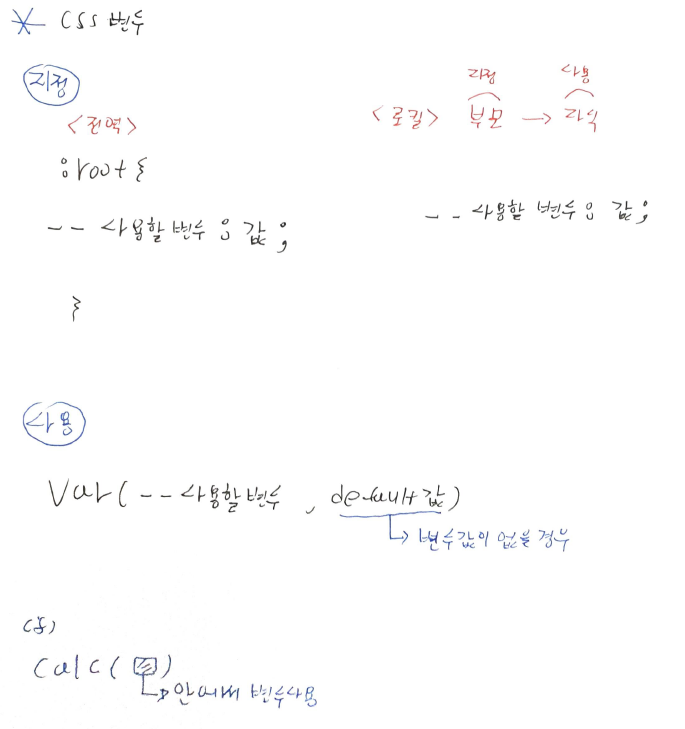 * CSS 변수
지정
<전역>
:root {
-- 사용할 변수 : 값 ;
}
지정 사용
<로컬> 부모 → 자식
-- 사용할 변수 : 값 ;
사용
Var( -- 사용할 변수 , default 값)
↳ 변수값이 없을 경우
calc( )
↳ 안에서 변수사용